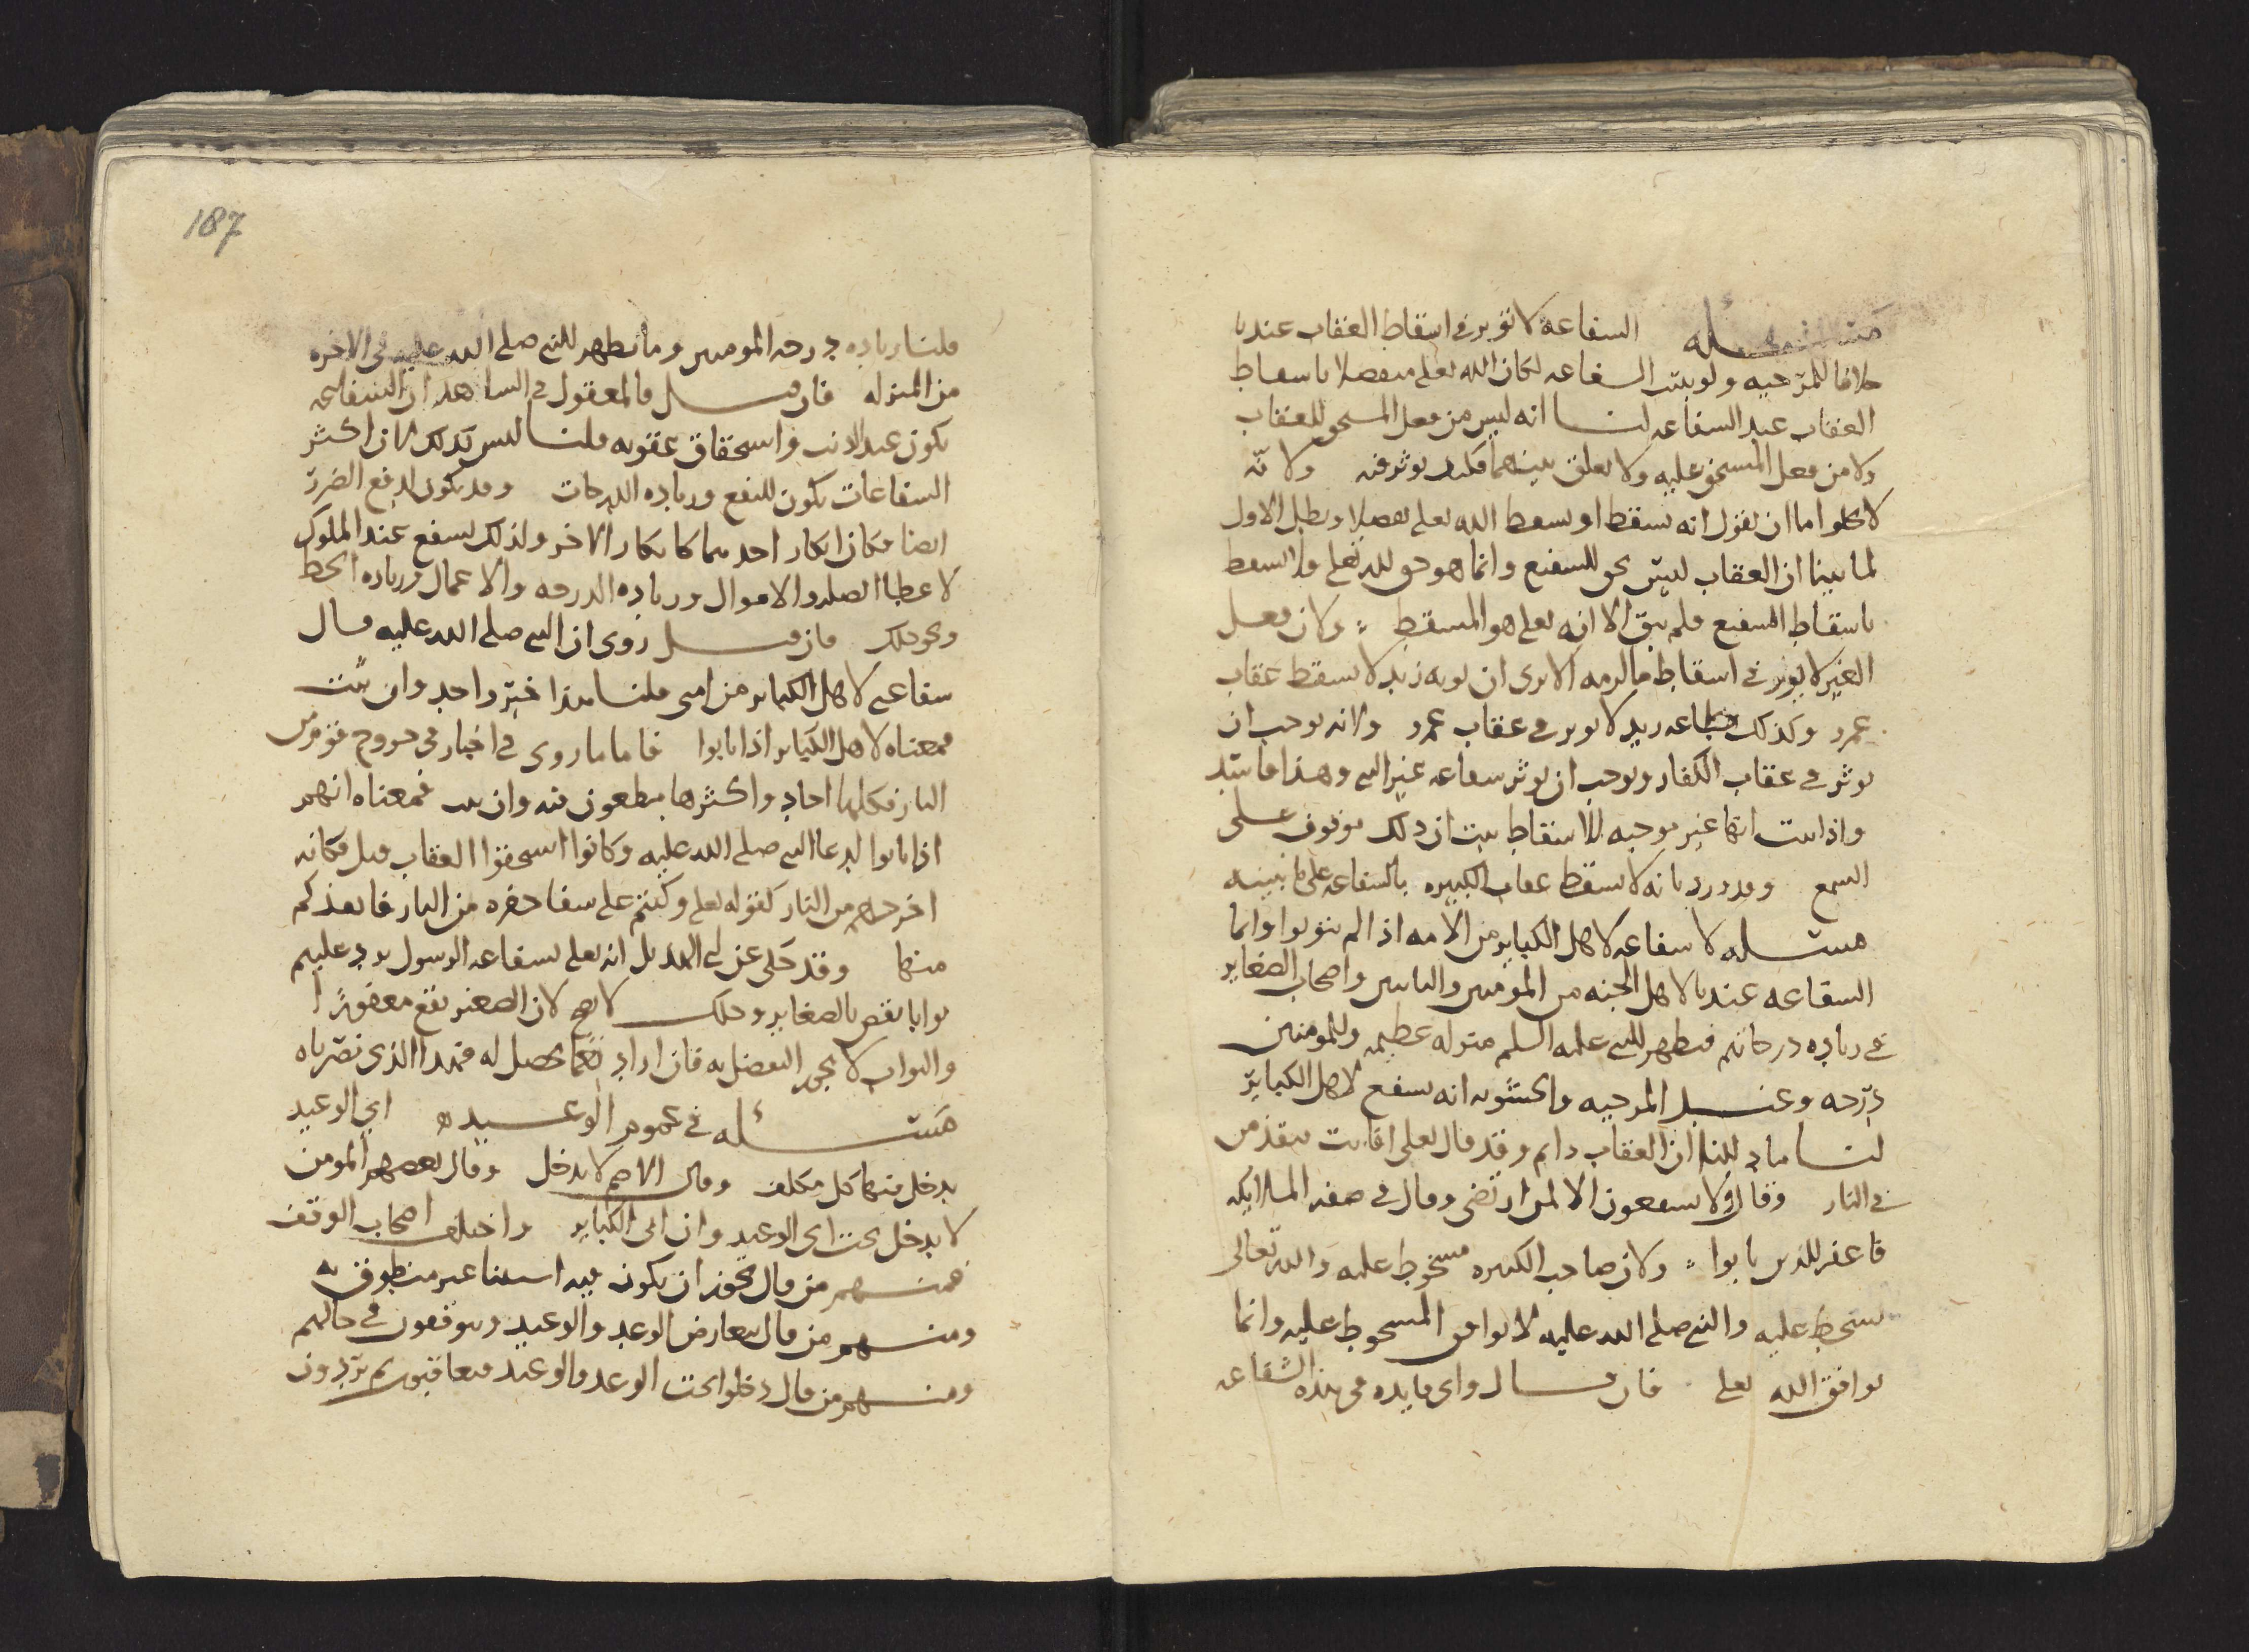 مسئله الشفاعة لا تؤثر في اسقاط العقاب عندنا
خلافا للمرجيه ولو بينت الشفاعه لكان الله تعلى متفضلا باسقاط
العقاب عند الشفاعه لنا انه ليس من فعل المستحق للعقاب
ولا من فعل المستحق عليه ولا تعلق بينهما فكيف يوثر فيه ولانه
لا يخلو اما ان نقول انه يسقط او يسقط الله تعلى تفضلا وبطل الاول
لما بينا ان العقاب ليس بحق للشفيع وانما هو حق لله تعلى ولا يسقط
باسقاط الشفيع فلم يبق الا انه تعلى هو المسقط ولان فعل
الغير لا يوثر في اسقاط ما لزمه الا ترى ان توبه زيد لا تسقط عقاب
عمرو وكذلك طاعه زيد لا توثر في عقاب عمرو ولانه يوجب ان
يوثر في عقاب الكفار ويوجب ان يوثر شفاعه غير النبي وهذا فاسد
واذا ثبت انها غير موجبه للاسقاط ثبت ان ذلك موقوف على
السمع وقد ورد بانه لا يسقط عقاب الكبيره بالشفاعه على ما نبينه
مسئله لا شفاعه لاهل الكباير من الامه اذا لم يتوبوا وانما
الشفاعه عندنا لاهل الجنه من المومنين والتايبين واصحاب الصغاير
في زياده درجاتهم فتظهر للنبي عليه السلم منزله عظيمه وللمومنين
درجه وعند المرجيه والحشويه انه يشفع لاهل الكباير
لنا ما دللنا ان العقاب دايم وقد قال تعلى افانت تنقذ من
في النار وقال ولا يشفعون الا لمن ارتضى وقال في صفه الملايكه
فاغفر للذين تابوا ولان صاحب الكبيره مسخوط عليه والله تعالى
يسخط عليه والنبي صلى الله عليه لا يوافق المسخوط عليه وانما
يوافق الله تعلى فان قال واي فايده في هذه الشفاعه
187
قلنا زياده درجه المومنين وما يظهر للنبي صلى الله عليه في الاخره
من المنزله فان قيل فالمعقول في الشاهد ان الشفاعه
تكون عند الذنب واستحقاق عقوبه قلنا ليس كذلك لان اكثر
الشفاعات تكون للنفع وزياده الدرجات وقد تكون لدفع الضرر
ايضا فكان انكار احدهما كانكار الاخر ولذلك يشفع عند الملوك
لاعطا الصله والاموال وزياده الدرجه والاعمال وزياده الخط
ونحو ذلك فان قيل روى ان النبي صلى الله عليه قال
شفاعتي لاهل الكباير من امتي قلنا هذا خبر واحد وان ثبت
فمعناه لاهل الكباير اذا تابوا فاما ما روى في اخبار في خروج قوم من
النار فكلها احاد واكثرها مطعون فيه وان ثبت فمعناه انهم
اذا تابوا لدعا النبي صلى الله عليه وكانوا استحقوا العقاب قبل فكانه
اخرجهم من النار كقوله تعلى وكنتم على شفا حفره من النار فانقذكم
منها وقد حكي عن ابي الهذيل انه تعلى بشفاعه الرسول يرد عليهم
ثوابا نقص بالصغاير وذلك لا يصح لان الصغير يقع مغفورا
والثواب لا يجوز التفضل به فان اراد نفعا يحصل له فهذا الذي نصرناه
مسئله في عموم الوعيد اي الوعيد
يدخل فيها كل مكلف وقال الاصم لا يدخل وقال بعضهم المومن
لا يدخل تحت اي الوعيد وان اتى الكباير واختلف اصحاب الوقف
فمنهم من قال يجوز ان يكون فيه استثنا غير منطوق به
ومنهم من قال يتعارض الوعد والوعيد ويتوقفون في حالهم
ومنهم من قال دخلوا تحت الوعد والوعيد فيعاقبون ثم يردون